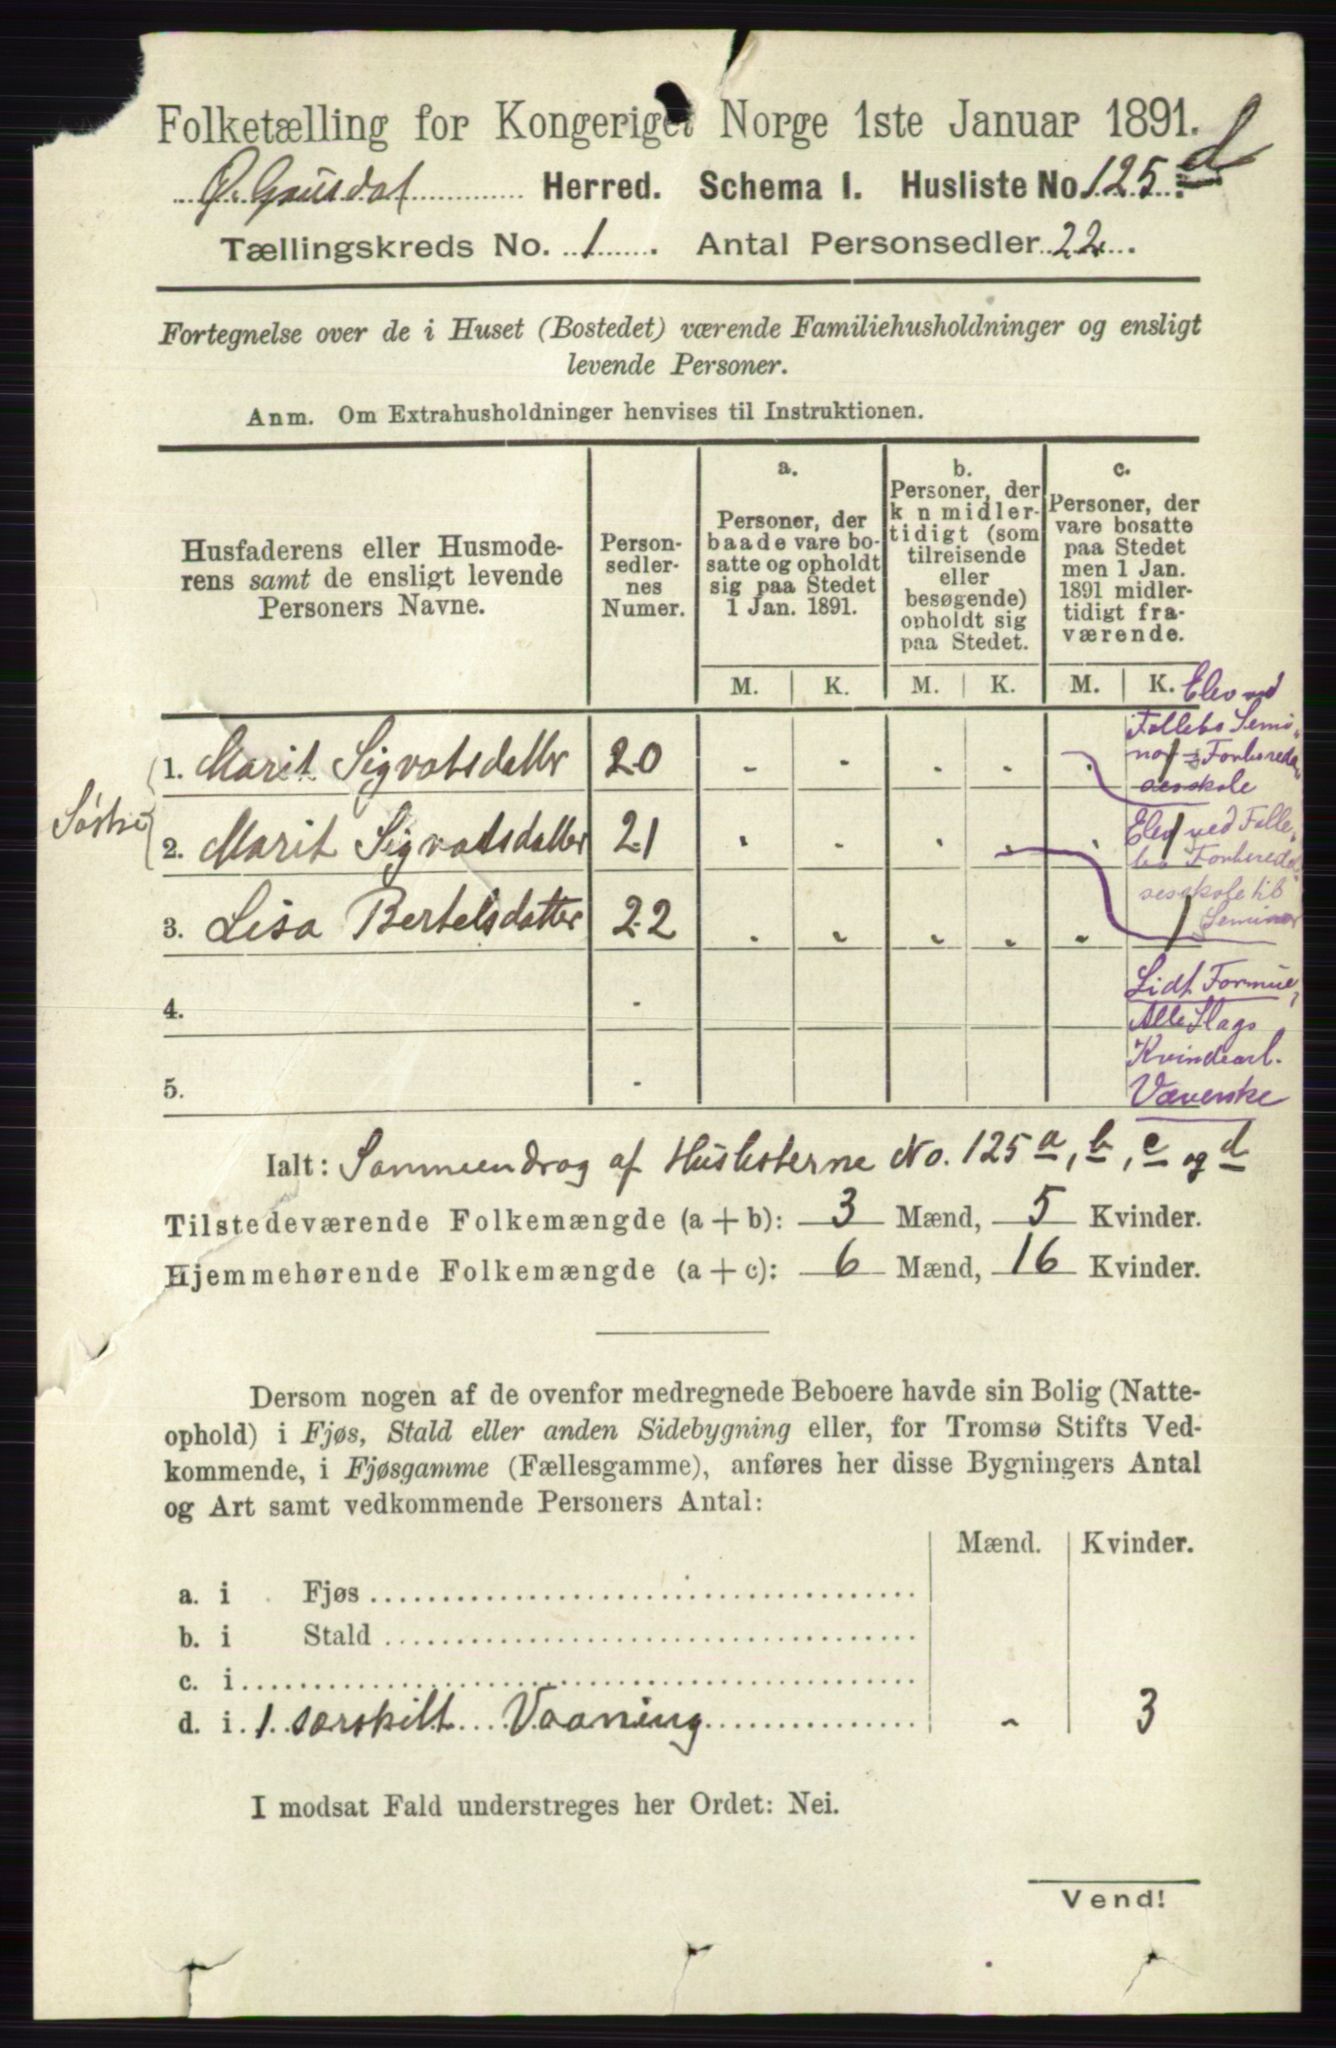 Folketælling for Kongeriget Norge 1ste Januar 1891.
Ø. Gausdal Herred. Schema 1. Husliste No 125 d
Tællingskreds No. 1. Antal Personsedler 22.
Fortegnelse over de i Huset (Bostedet) værende Familiehusholdninger og ensligt
levende Personer.
Anm. Om Extrahusholdninger henvises til Instruktionen.
Husfaderens eller Husmode-
rens samt de ensligt levende
Personers Navne.
Person-
sedler-
nes
Numer.
a.
Personer, der
baade vare bo-
satte og opholdt
sig paa Stedet
1 Jan. 1891.
b.
Personer, der
k n midler-
tidigt (som
tilreisende
eller
besøgende)
opholdt sig
paa Stedet.
c.
Personer, der
vare bosatte
paa Stedet
men 1 Jan.
1891 midler-
tidigt fra-
værende.
M. K. M. K. M. K.
Søstre
1. Marit Sigvatsdatter 20 - - - - - 1
2. Marit Sigvatsdatter 21 - - - - - 1
3. Lisa Bertelsdatter 22 - - - - - 1
4. -
5. -
Elev ved
Follebo Semi-
nar = Forbered-
sesskole
Elev ved Folle-
bo Forbered-
sesskole til
Seminar
Lidt Formue,
Alle Slags
Kvindearb.
Væverske
Ialt: Sammendrag af Huslisterne No. 125 a, b, c og d
Tilstedeværende Folkemængde (a + b): 3 Mænd, 5 Kvinder.
Hjemmehørende Folkemængde (a + c): 6 Mænd, 16 Kvinder.
Dersom nogen af de ovenfor medregnede Beboere havde sin Bolig (Natte-
ophold) i Fjøs, Stald eller anden Sidebygning eller, for Tromsø Stifts Ved-
kommende, i Fjøsgamme (Fællesgamme), anføres her disse Bygningers Antal
og Art samt vedkommende Personers Antal:
Mænd. Kvinder.
a. i Fjøs
b. i Stald
c. i
d. i 1 særskilt Vaaning - 3
I modsat Fald understreges her Ordet: Nei.
Vend!